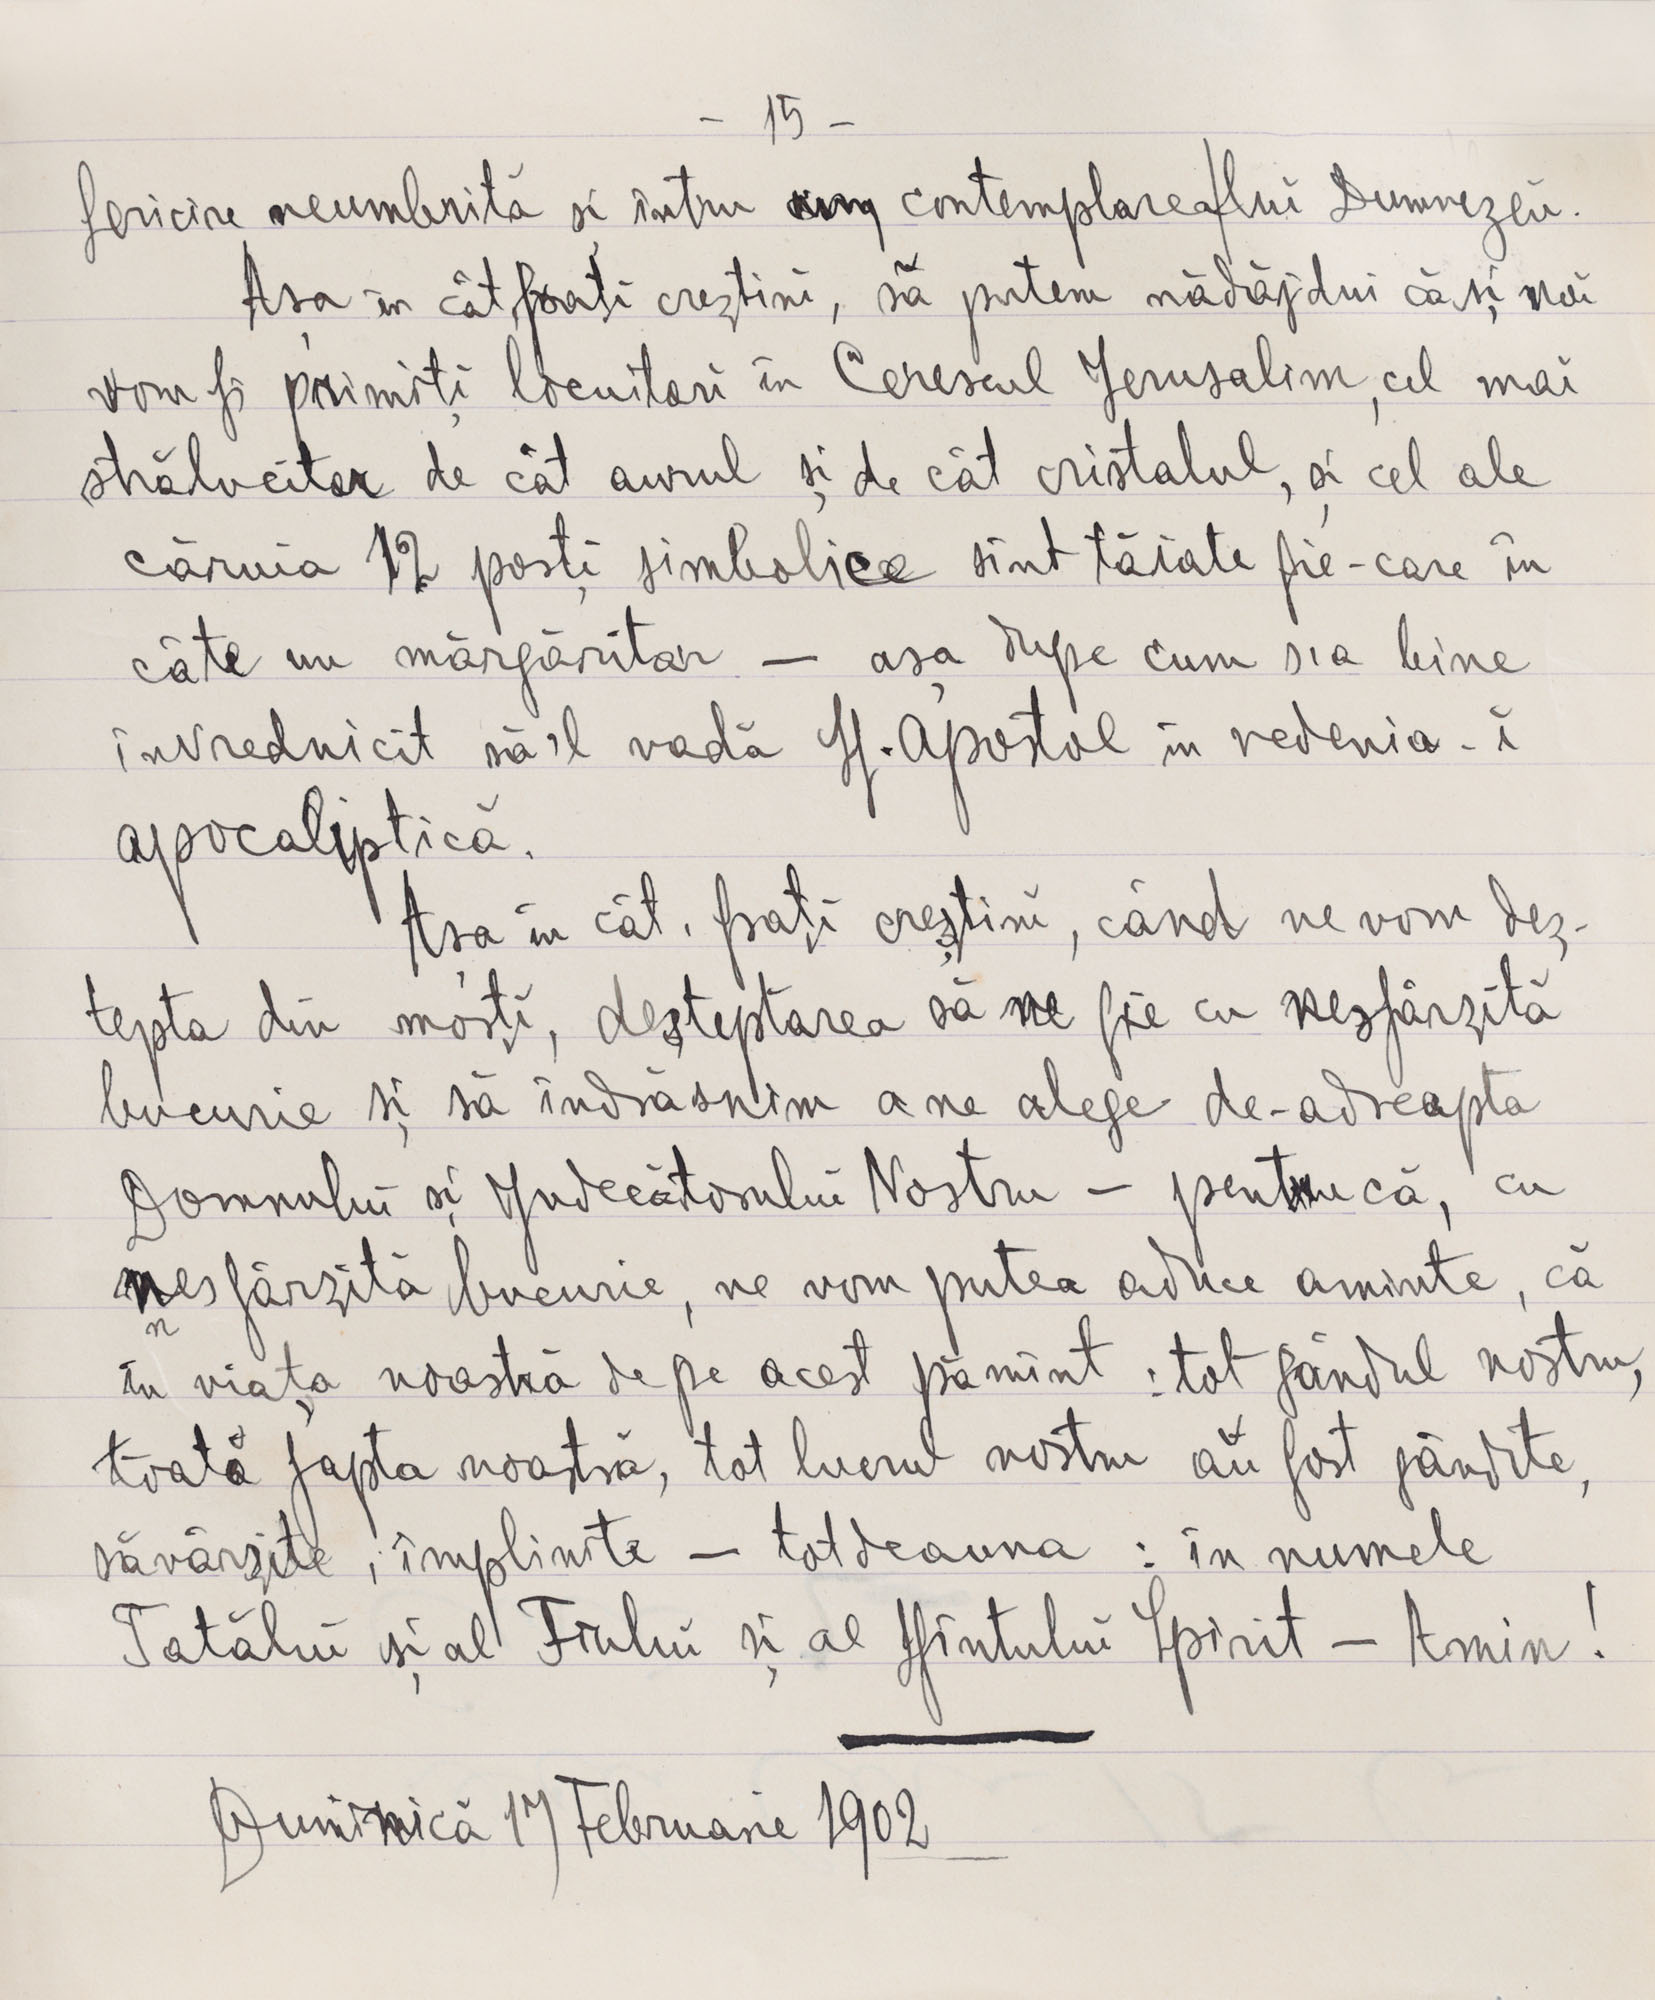 - 15 -
fericire neumbrită și întru contemplarea lui Dumnezeŭ.
Așa în cât, frați creștinĭ, să putem nădăjdui că și noi
vom fi primiți locuitorĭ în Cerescul Jerusalim, cel mai
strălucitor de cât aurul și de cât cristalul, și cel ale
căruia 12 porțĭ simbolice sînt tăiate fie-care în
câte un mărgăritar — așa dupe cum s'a bine
învrednicit să'l vadă Sf. Apostol în vedenia-ĭ
apocaliptică.
Așa în cât, frațĭ creștinĭ, când ne vom deș-
tepta din morțĭ, deșteptarea să ne fie cu nesfârzită
bucurie și să îndrăsnim a ne alege de-adreapta
Domnuluĭ și Judecătoruluĭ Nostru — pentrucă, cu
nesfârzită bucurie, ne vom putea aduce aminte, că
în viața noastră de pe acest pămînt : tot gândul nostru,
toată fapta noastră, tot lucrul nostru aŭ fost gândite,
săvârzite, împlinite — totdeauna : în numele
Tatăluĭ și al Fiuluĭ și al Sfîntuluĭ Spirit — Amin !
Duminică 17 Februarie 1902